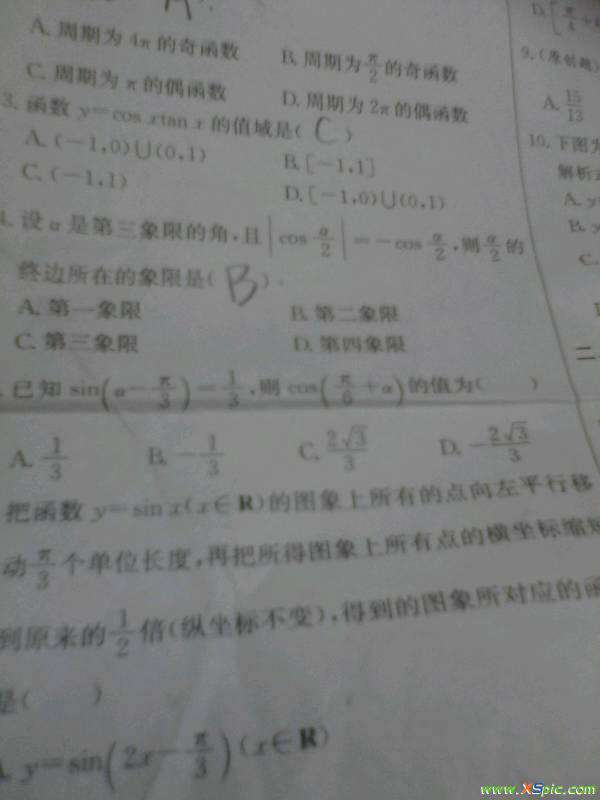 A. 周期为 4π 的奇函数
B. 周期为 π/2 的奇函数
C. 周期为 π 的偶函数
D. 周期为 2π 的偶函数
3. 函数 y=cos xtan x 的值域是( C )
A. (-1,0)∪(0,1)
B. [-1,1]
C. (-1,1)
D. [-1,0)∪(0,1)
4. 设 α 是第三象限的角,且 |cos α/2|=-cos α/2,则 α/2 的
终边所在的象限是( B ).
A. 第一象限
B. 第二象限
C. 第三象限
D. 第四象限
已知 sin(α-π/3)=1/3,则 cos(π/6+α)的值为( )
A. 1/3
B. -1/3
C. 2√3/3
D. -2√3/3
把函数 y=sin x(x∈R)的图象上所有的点向左平行移
动 π/3 个单位长度,再把所得图象上所有点的横坐标缩短
到原来的 1/2 倍(纵坐标不变),得到的图象所对应的函
是( )
A. y=sin(2x-π/3)(x∈R)
9. (原创题)
A. 15/13
10. 下图为
解析式
A. y
B. y
C.
二
www.XSpic.com